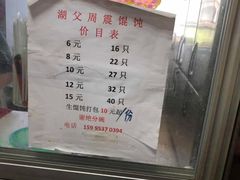 湖父周震馄饨
价目表
6 元 16 只
8 元 22 只
10 元 27 只
12 元 32 只
15 元 40 只
生馄饨打包 10 元起/份
谢绝分碗
电话 159 9537 0394